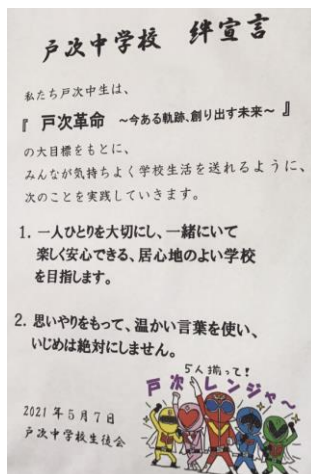 戸次中学校 絆宣言
私たち戸次中生は、
『 戸次革命 ～今ある軌跡、創り出す未来～ 』
の大目標をもとに、
みんなが気持ちよく学校生活を送れるように、
次のことを実践していきます。
1. 一人ひとりを大切にし、一緒にいて
楽しく安心できる、居心地のよい学校
を目指します。
2. 思いやりをもって、温かい言葉を使い、
いじめは絶対にしません。
5人揃って!
戸次レンジャ～
2021年5月7日
戸次中学校生徒会